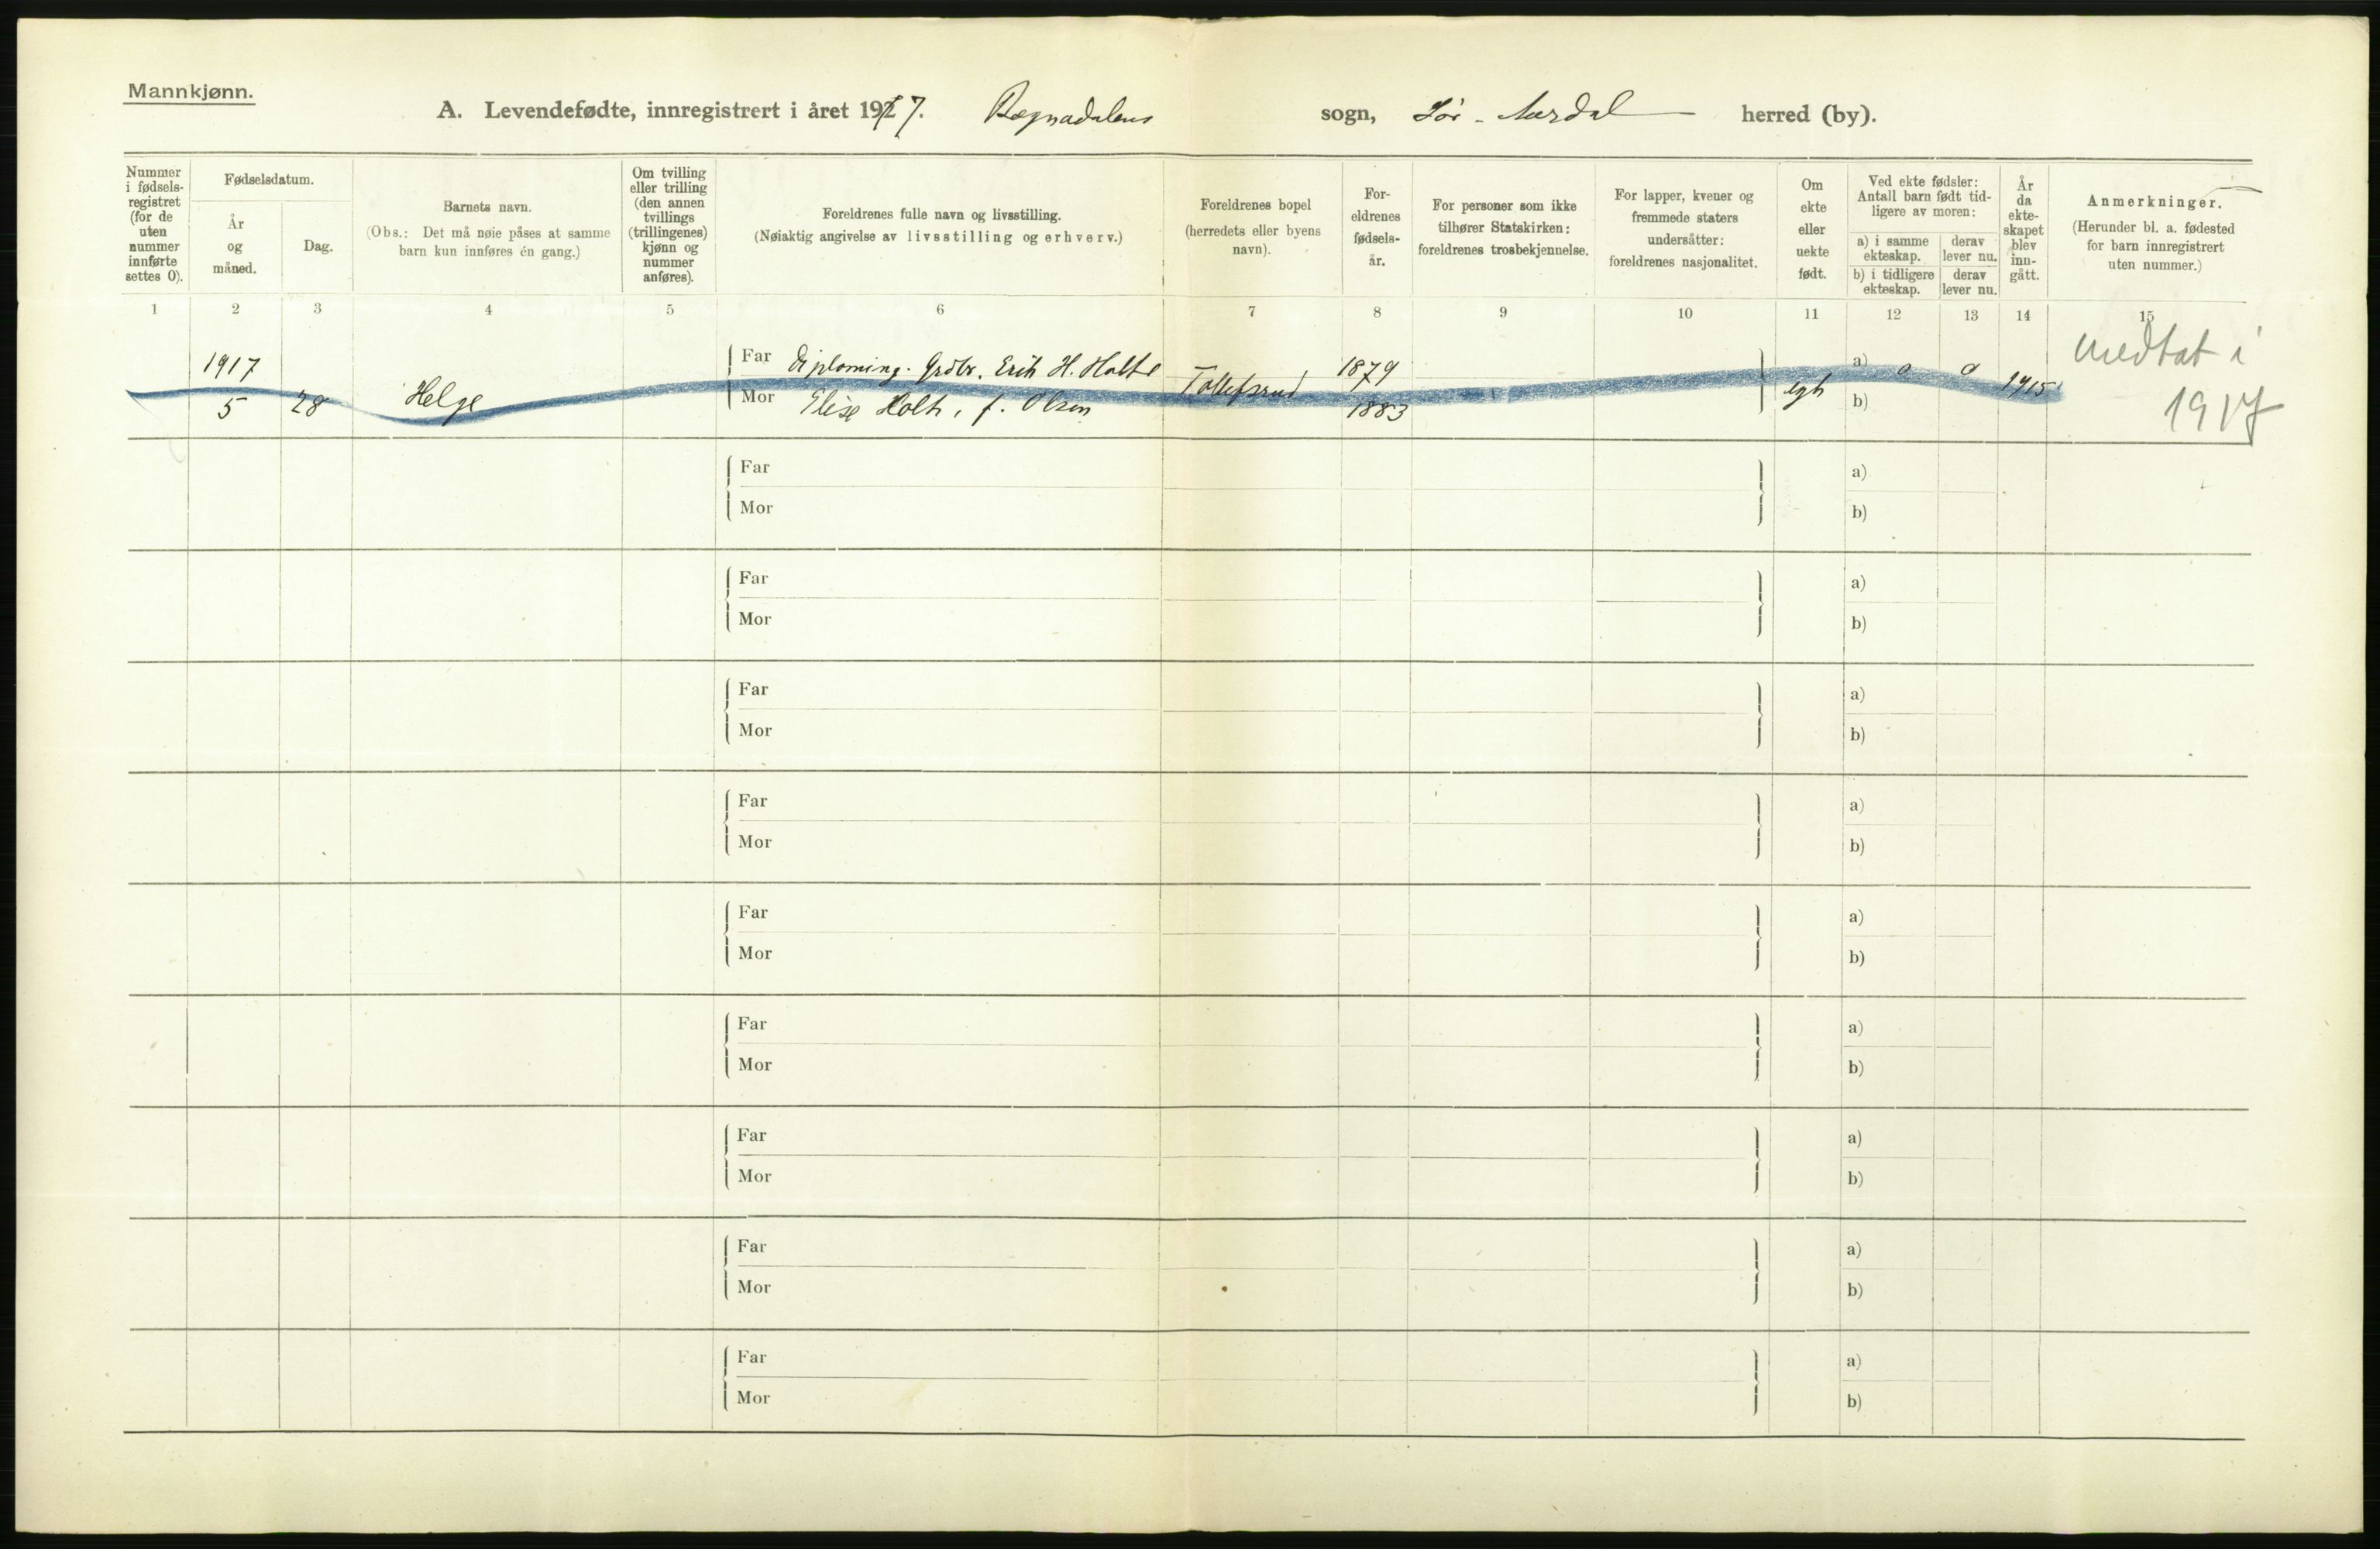 Mannkjønn.
A. Levendefødte, innregistrert i året 1917. Begnadalens sogn, Sør-Aurdal herred (by).
Nummer i fødsels-registret (for de uten nummer innførte settes 0).
Fødselsdatum.
År og måned.
Dag.
Barnets navn.
(Obs.: Det må nøie påses at samme barn kun innføres én gang.)
Om tvilling eller trilling (den annen tvillings (trillingenes) kjønn og nummer anføres).
Foreldrenes fulle navn og livsstilling.
(Nøiaktig angivelse av livsstilling og erhverv.)
Foreldrenes bopel (herredets eller byens navn).
For-eldrenes fødsels-år.
For personer som ikke tilhører Statskirken: foreldrenes trosbekjennelse.
For lapper, kvener og fremmede staters undersåtter: foreldrenes nasjonalitet.
Om ekte eller uekte født.
Ved ekte fødsler: Antall barn født tid-ligere av moren:
a) i samme ekteskap.
derav lever nu.
b) i tidligere ekteskap.
derav lever nu.
År da ekte-skapet blev inn-gått.
Anmerkninger.
(Herunder bl. a. fødested for barn innregistrert uten nummer.)
1 2 3 4 5 6 7 8 9 10 11 12 13 14 15
1917 Far Diploming. Grdbr. Erik H. Holte 1879 a) 0 0 medtat i
5 28 Helge Mor Elise Holth, f. Olsen Tollefsrud 1883 egte b) 1915 1917
Far a)
Mor b)
Far a)
Mor b)
Far a)
Mor b)
Far a)
Mor b)
Far a)
Mor b)
Far a)
Mor b)
Far a)
Mor b)
Far a)
Mor b)
Far a)
Mor b)